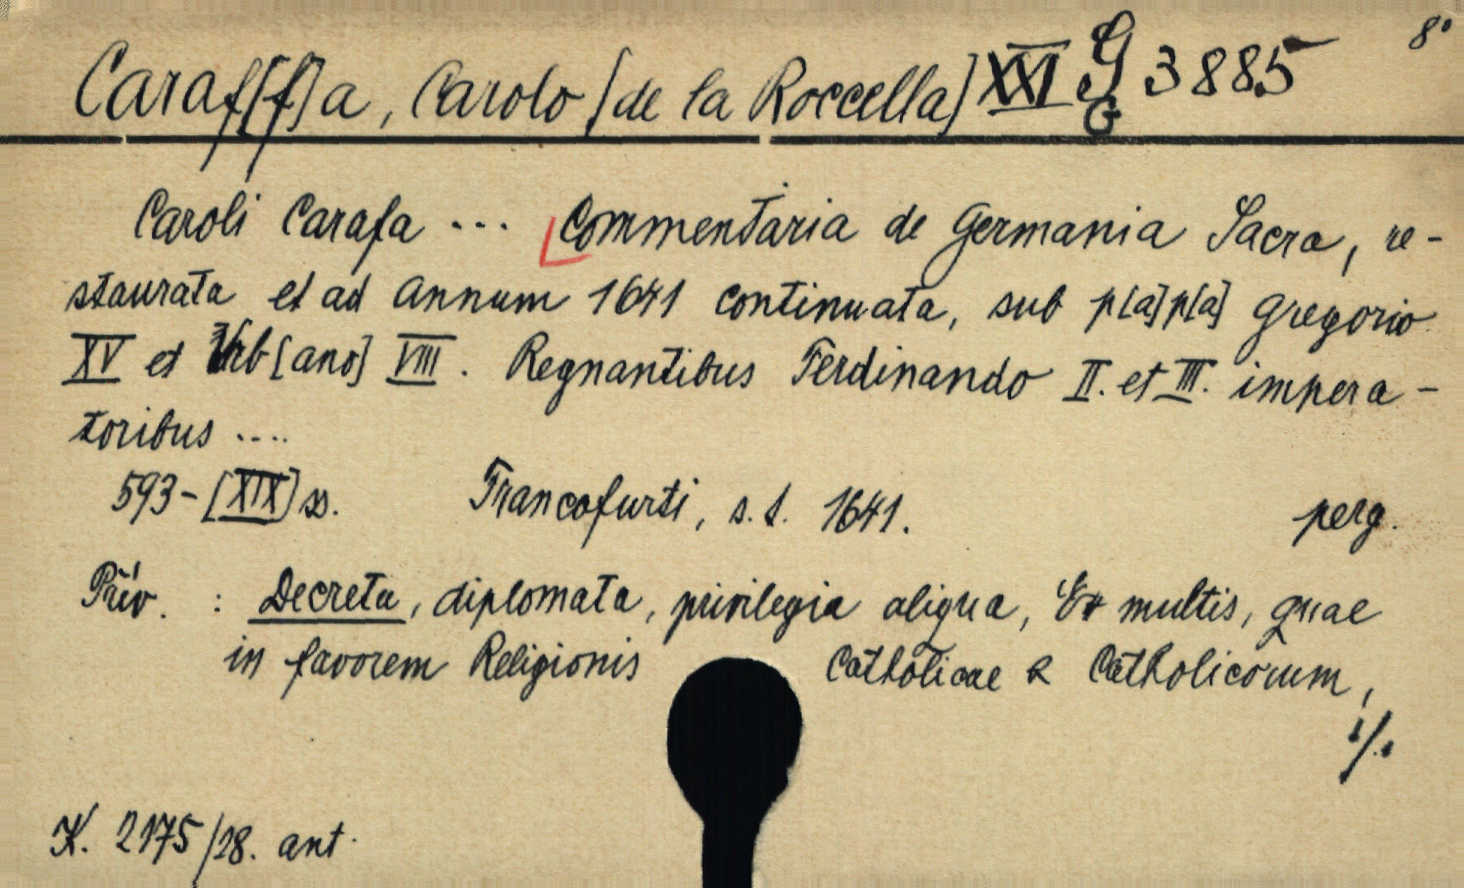 Caraf[f]a, Carolo [de la Roccella] XXI G 3885 8°
G
Caroli Carafa ... Commentaria de Germania Sacra, re-
staurata et ad annum 1641 continuata, sub p[a]p[a] Gregorio
XV et Urb[ano] VIII. Regnantibus Ferdinando II. et III. impera-
toribus ....
593-[XIX] s. Francofurti, s.t. 1641. perg.
Přív. : Decreta, diplomata, privilegia aliqua, Ex multis, quae
in favorem Religionis Catholicae & Catholicorum,
./.
K. 2175/28. ant.